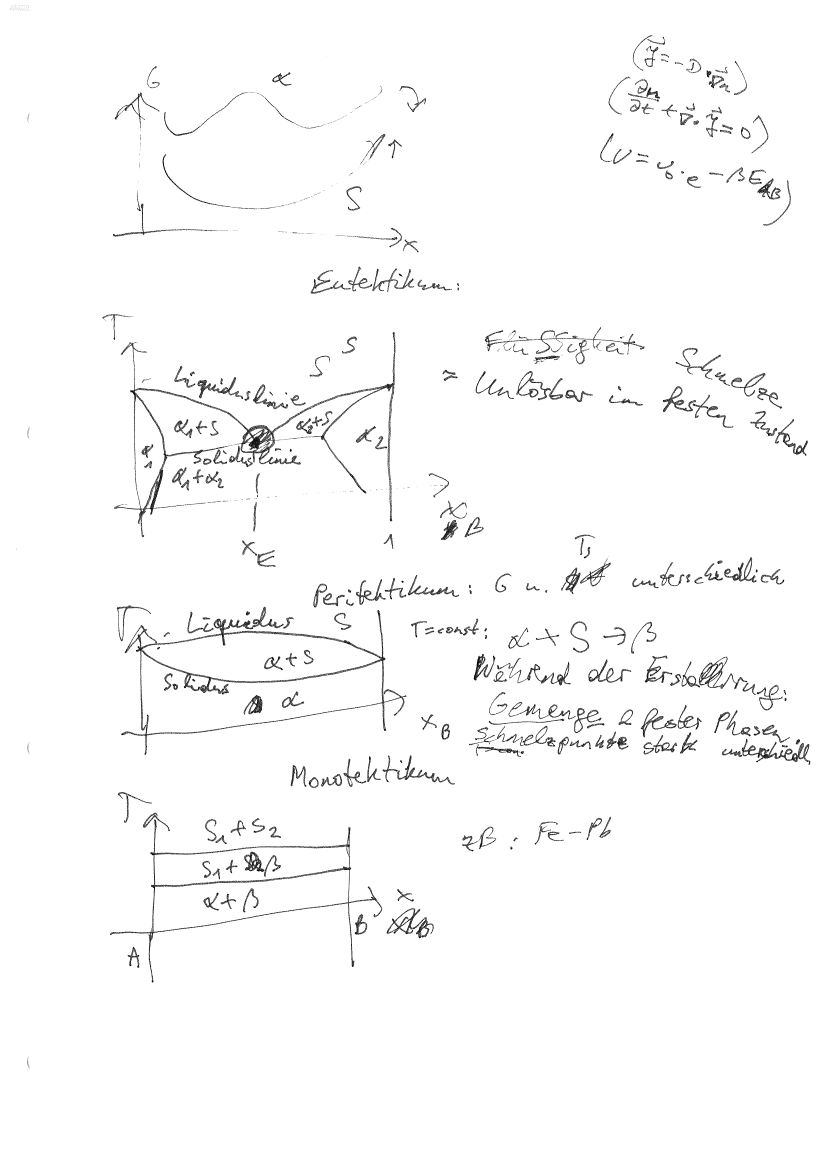 G
α
S
x
(j⃗ = -D · ∇⃗n)
(∂n/∂t + ∇⃗ · j⃗ = 0)
(ν = ν₀ · e^(-βE_AB))
Eutektikum:
T
S S
Liquiduslinie
α₁+S
α₂+S
α₁
α₂
Soliduslinie
α₁+α₂
x_E
1
x_B
Flüssigkeit Schmelze
= Unlösbar im festen Zustand
Peritektikum: G u. Ts unterschiedlich
T
Liquidus
S
α+S
Solidus
α
x_B
T=const: α + S → β
Während der Erstarrung:
Gemenge 2 fester Phasen
Schmelzpunkte stark unterschiedl
Monotektikum
T
S₁+S₂
S₁+β
α+β
A
B
x
zB: Fe-Pb